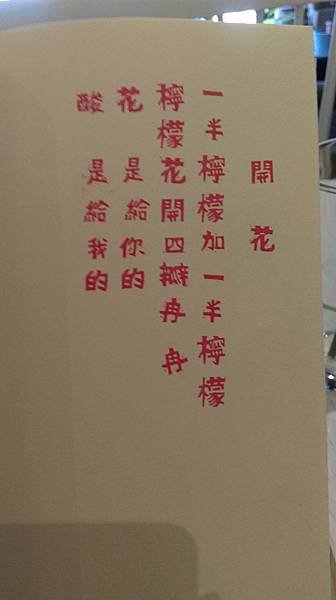 開花
一半檸檬加一半檸檬
檸檬花開四瓣冉冉
花 是給你的
酸 是給我的